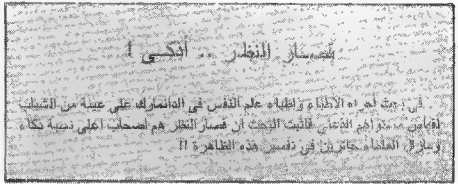 قصار النظر .. أذكى !
فى بحث أجراه الأطباء وأطباء علم النفس فى الدانمارك على عينة من الشباب
لقياس مستواهم الذهنى فأثبت البحث أن قصار النظر هم أصحاب أعلى نسبة ذكاء
ومازال العلماء حائرين فى تفسير هذه الظاهرة !!